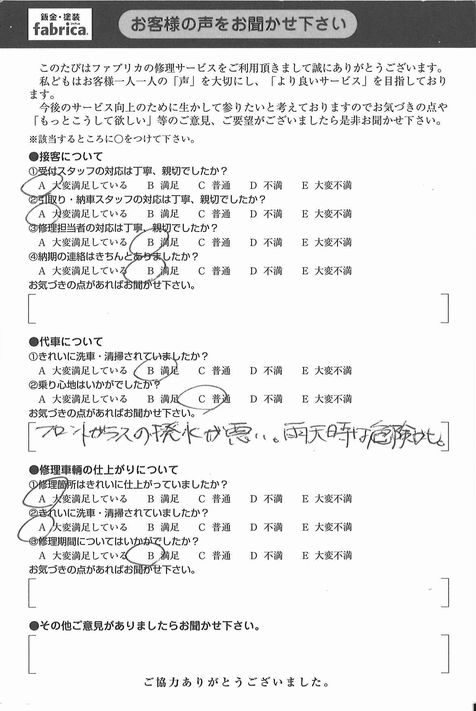 鈑金・塗装
fabrica.
お客様の声をお聞かせ下さい
このたびはファブリカの修理サービスをご利用頂きまして誠にありがとうございます。
私どもはお客様一人一人の「声」を大切にし、「より良いサービス」を目指しており
ます。
今後のサービス向上のために生かして参りたいと考えておりますのでお気づきの点や
「もっとこうして欲しい」等のご意見、ご要望がございましたら是非お聞かせ下さい。
※該当するところに○をつけて下さい。
●接客について
①受付スタッフの対応は丁寧、親切でしたか？
A 大変満足している B 満足 C 普通 D 不満 E 大変不満
②引取り・納車スタッフの対応は丁寧、親切でしたか？
A 大変満足している B 満足 C 普通 D 不満 E 大変不満
③修理担当者の対応は丁寧、親切でしたか？
A 大変満足している B 満足 C 普通 D 不満 E 大変不満
④納期の連絡はきちんとありましたか？
A 大変満足している B 満足 C 普通 D 不満 E 大変不満
お気づきの点があればお聞かせ下さい。
●代車について
①きれいに洗車・清掃されていましたか？
A 大変満足している B 満足 C 普通 D 不満 E 大変不満
②乗り心地はいかがでしたか？
A 大変満足している B 満足 C 普通 D 不満 E 大変不満
お気づきの点があればお聞かせ下さい。
フロントガラスの撥水が悪い。雨天時は危険かも。
●修理車輌の仕上がりについて
①修理箇所はきれいに仕上がっていましたか？
A 大変満足している B 満足 C 普通 D 不満 E 大変不満
②きれいに洗車・清掃されていましたか？
A 大変満足している B 満足 C 普通 D 不満 E 大変不満
③修理期間についてはいかがでしたか？
A 大変満足している B 満足 C 普通 D 不満 E 大変不満
お気づきの点があればお聞かせ下さい。
●その他ご意見がありましたらお聞かせ下さい。
ご協力ありがとうございました。